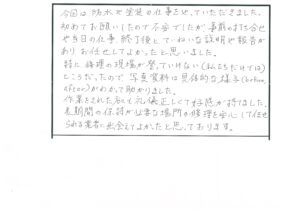 今回は防水や塗装の仕事をやっていただきました。
初めてお願いしたので不安でしたが事前の打ち合せ
や当日の仕事、終了後とていねいな説明や報告が
ありお任せしてよかったと思いました。
特に修理の現場が登っていけない(私たちだけでは)
ところだったので写真資料は具体的な様子(before,
after)がわかって助かりました。
作業をされた方も礼儀正しくて好感が持てました。
長期間の保持が必要な場所の修理を安心して任せ
られる業者に出会えてよかったと思っております。